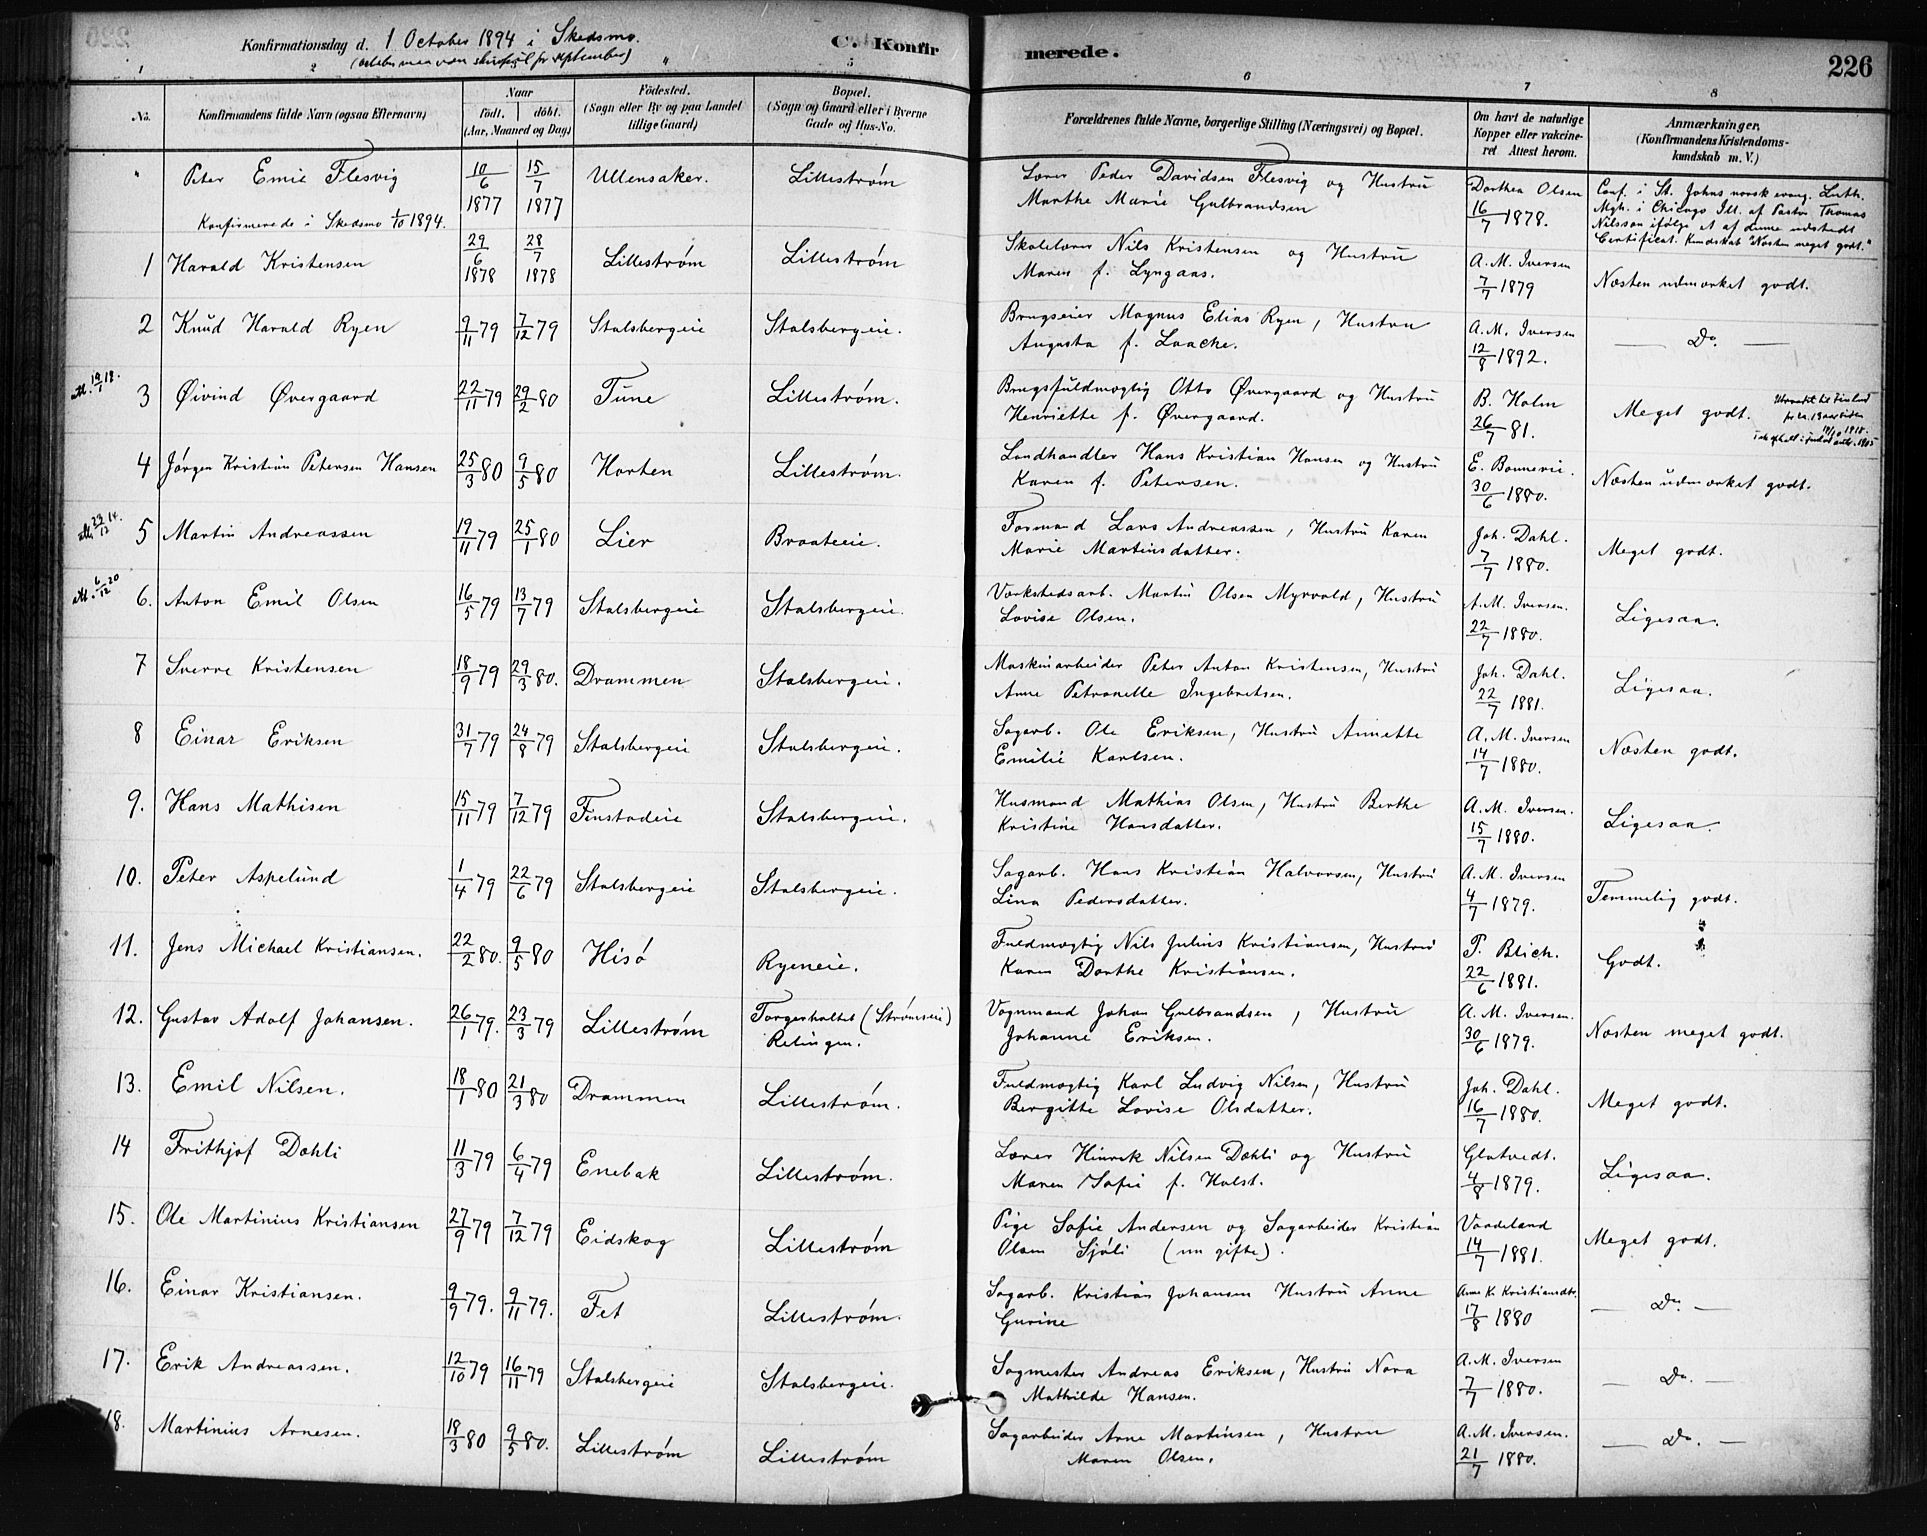 Konfirmationsdag d. 1 October 1894 i Skedsmo.
C. Konfirmerede.
226
1 2 4 5 6 7 8
No.
Konfirmandens fulde Navn (ogsaa Efternavn)
Naar
födt. döbt.
(Aar, Maaned og Dag)
Födested.
(Sogn eller By og paa Landet tillige Gaard)
Bopæl.
(Sogn og Gaard eller i Byerne Gade og Hus-No.
Forældrenes fulde Navne, borgerlige Stilling (Næringsvei) og Bopæl.
Om havt de naturlige Kopper eller vakcineret Attest herom.
Anmærkninger.
(Konfirmandens Kristendomskundskab m. V.)
" Peter Emil Flesvig 10/6 1877 15/7 1877 Ullensaker. Lillestrøm Lærer Peder Davidsen Flesvig og Hustru Marthe Marie Gulbrandsen Dorthea Olsen 16/7 1878. Conf. i St. Johns norsk evang. Luth. Mgh. i Chicago Ill. af Pastor Thomas Nilsson ifølge et af denne udstedt Certificat. Kundskab "Næsten meget godt."
Konfirmerede i Skedsmo 1/10 1894.
1 Harald Kristensen 29/6 1878 28/7 1878 Lillestrøm Lillestrøm Skolelærer Nils Kristensen og Hustru Maren f. Lyngaas. A. M. Iversen 7/7 1879 Næsten udmærket godt.
2 Knud Harald Ryen 9/11 79 7/12 79 Stalsbergeie Stalsbergeie. Brugseier Magnus Elias Ryen, Hustru Augusta f. Laache. A. M. Iversen 12/8 1892. — Do. —
3 Øivind Øvergaard 22/11 79 29/2 80 Tune Lillestrøm. Brugsfuldmægtig Otto Øvergaard og Hustru Henriette f. Øvergaard. B. Holm 26/7 81. Meget godt.
4 Jørgen Kristian Petersen Hansen 25/3 80 9/5 80 Horten Lillestrøm. Landhandler Hans Kristian Hansen og Hustru Karen f. Petersen. E. Bonnevie. 30/6 1880. Næsten udmærket godt.
att. 23/12 14. 5 Martin Andreassen 19/11 79 25/1 80 Lier Braateeie. Formand Lars Andreassen, Hustru Karen Marie Martinsdatter. Joh. Dahl. 7/7 1880. Meget godt.
att. 6/12 20 6. Anton Emil Olsen 16/5 79 13/7 79 Stalsbergeie Stalsbergeie. Værkstedsarb. Martin Olsen Myrvold, Hustru Lovise Olsen. A. M. Iversen. 22/7 1880. Ligesaa.
7 Sverre Kristensen 18/9 79 29/3 80. Drammen Stalsbergeie. Maskinarbeider Peter Anton Kristensen, Hustru Anne Petronelle Ingebretsen. Joh. Dahl. 22/7 1881. Ligesaa.
8 Einar Eriksen 31/7 79 24/8 79 Stalsbergeie Stalsbergeie. Sagarb. Ole Eriksen, Hustru Annette Emilie Karlsen. A. M. Iversen 14/7 1880. Næsten godt.
9. Hans Mathisen 15/11 79 7/12 79 Finstadeie Stalsbergeie. Husmand Mathias Olsen, Hustru Berthe Kristine Hansdatter. A. M. Iversen. 15/7 1880. Ligesaa.
10. Peter Aspelund 1/4 79 22/6 79 Stalsbergeie Stalsbergeie. Sagarb. Hans Kristian Halvorsen, Hustru Lina Pedersdatter. A. M. Iversen 4/7 1879. Temmelig godt.
11. Jens Michael Kristiansen. 22/2 80. 9/5 80 Hisö Ryeneie. Fuldmægtig Nils Julius Kristiansen, Hustru Karen Dorthe Kristiansen. P. Blich. 22/6 1881. Godt.
12. Gustav Adolf Johansen. 26/1 79. 23/3 79 Lillestrøm Torgerholtet (Strømseie) Relingen. Vognmand Johan Gulbrandsen, Hustru Johanne Eriksen. A. M. Iversen. 30/6 1879. Næsten meget godt.
13. Emil Nilsen. 18/1 80 21/3 80 Drammen Lillestrøm. Fuldmægtig Karl Ludvig Nilsen, Hustru Bergitte Lovise Olsdatter. Joh. Dahl. 16/7 1880. Meget godt.
14 Frithjof Dæhli 11/3 79 6/4 79 Enebak Lillestrøm. Lærer Hinrek Nilsen Dæhli og Hustru Maren Sofie f. Holst. Glatvedt. 4/8 1879. Ligesaa.
15. Ole Martinius Kristiansen 27/9 79 7/12 79 Eidskog Lillestrøm Pige Sofie Andersen og Sagarbeider Kristian Olsen Sjöli (nu gifte). Vaadeland 14/7 1881. Meget godt.
16. Einar Kristiansen. 9/9 79. 9/11 79. Fet Lillestrøm. Sagarb. Kristian Johansen Hustru Anne Gurine Anne K. Kristiansdtr. 17/8 1880 — Do. —
17. Erik Andreassen. 12/10 79 16/11 79 Stalsbergeie Stalsbergeie. Sagmester Andreas Eriksen, Hustru Nora Mathilde Hansen. A. M. Iversen 7/7 1880. — Do. —
18. Martinius Arnesen. 18/3 80 9/5 80. Lillestrøm Lillestrøm Sagarbeider Arne Martinsen, Hustru Maren Olsen. A. M. Iversen. 21/7 1880. — Do. —